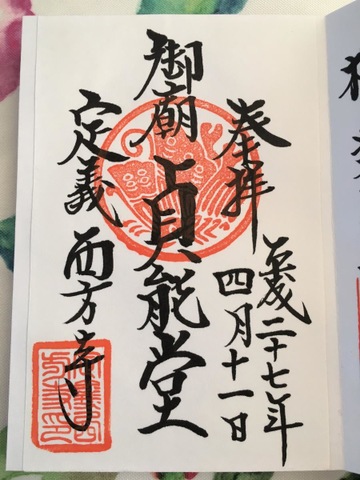 奉拝
平成二十七年
四月十一日
御廟 貞能堂
定義 西方寺